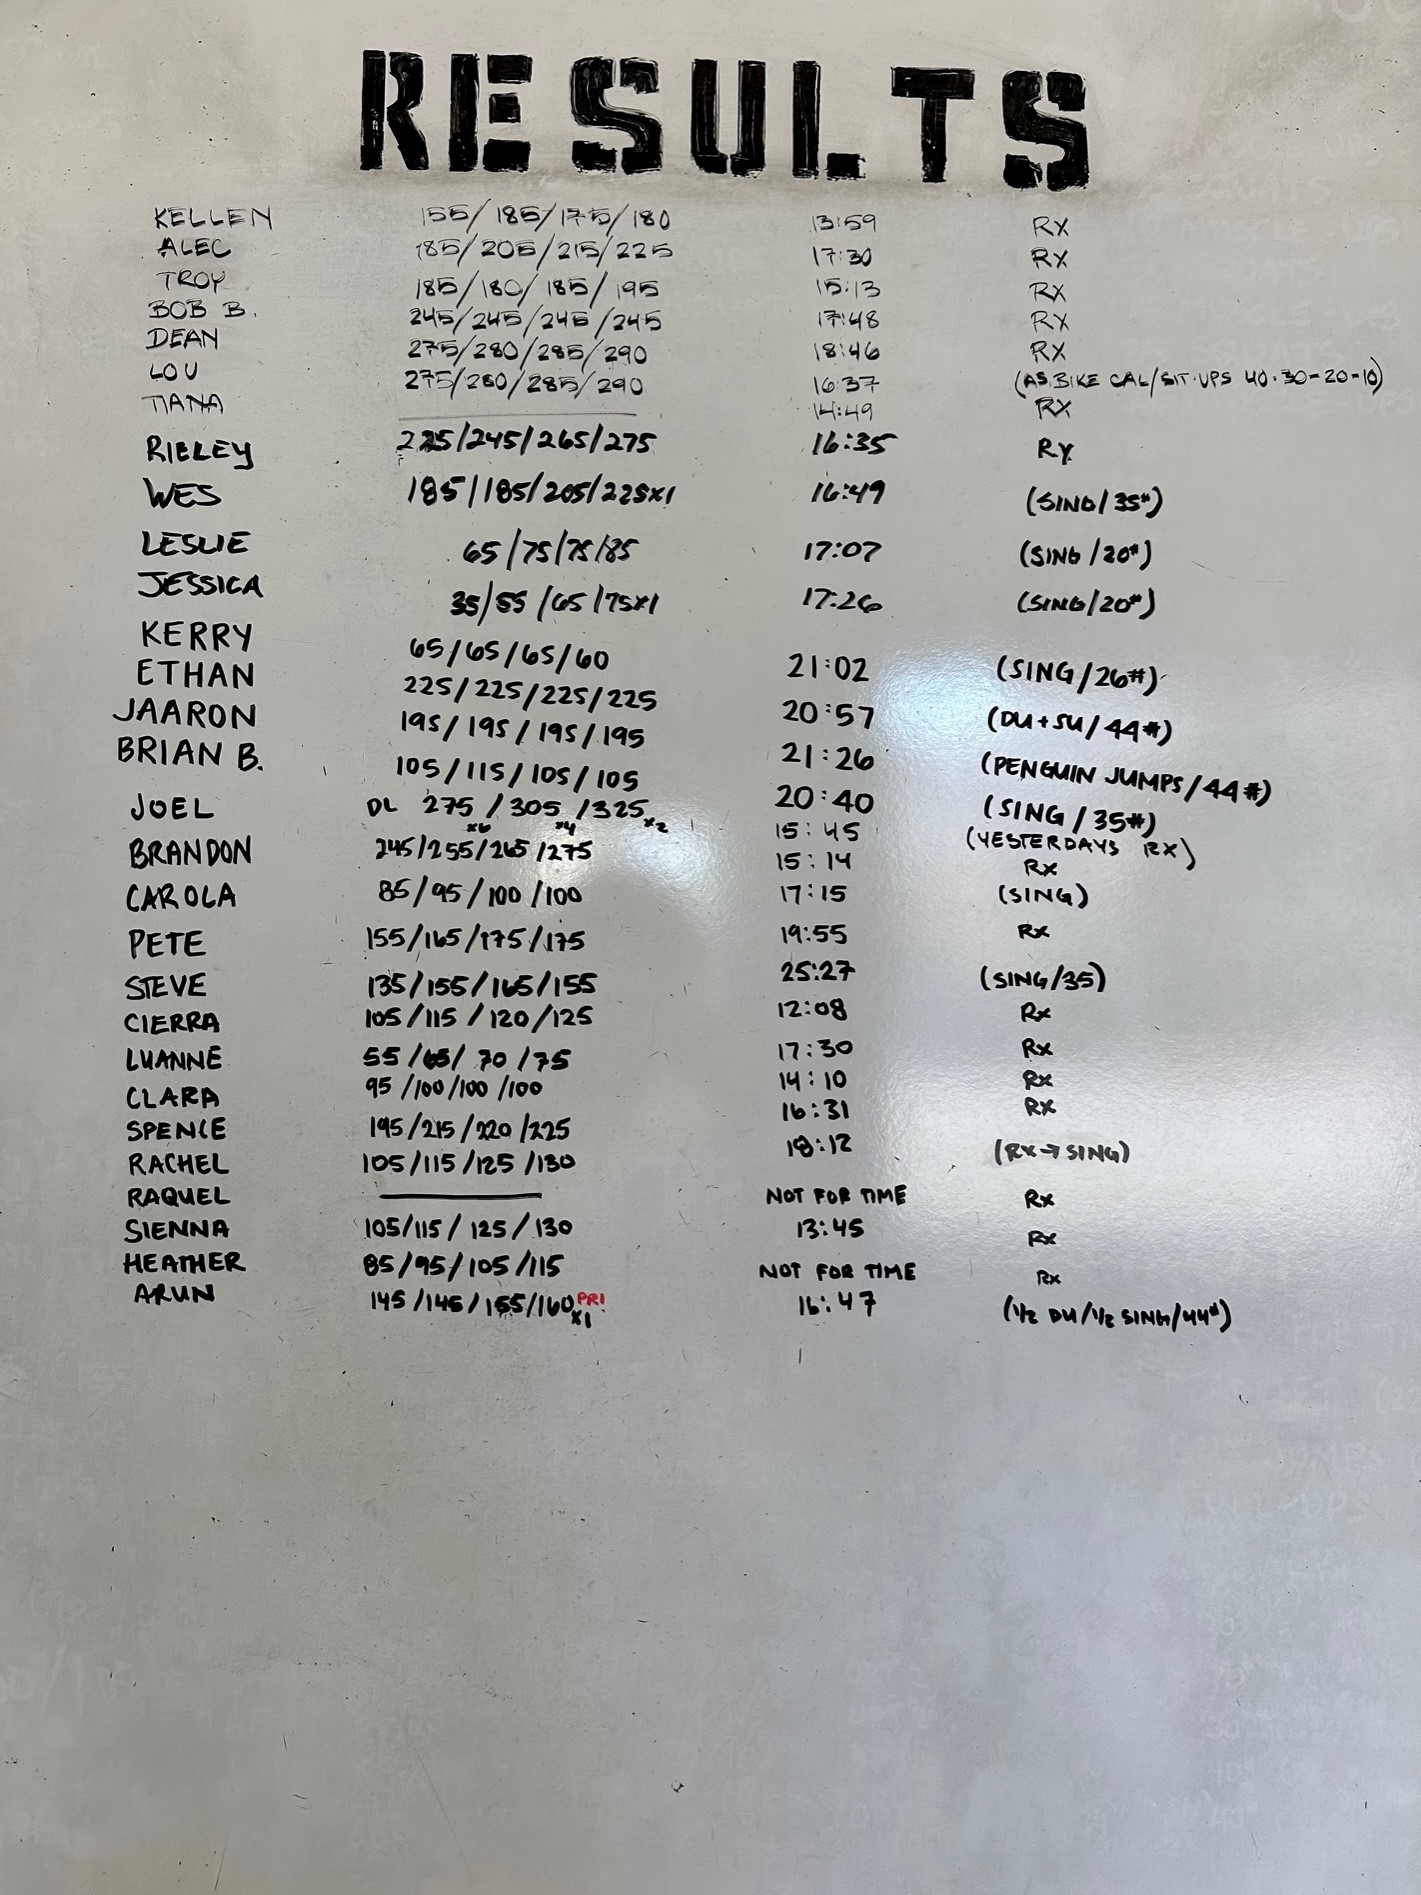 RESULTS
KELLEN 155/185/175/180 13:59 RX
ALEC 185/205/215/225 17:30 RX
TROY 185/180/185/195 15:13 RX
BOB B. 245/245/245/245 17:48 RX
DEAN 275/280/285/290 18:46 RX
LOU 275/280/285/290 16:37 (AS.BIKE CAL/SIT-UPS 40-30-20-10)
TIANA 14:49 RX
RIELEY 225/245/265/275 16:35 RX
WES 185/185/205/225x1 16:49 (SING/35#)
LESLIE 65/75/75/85 17:07 (SING/20#)
JESSICA 35/55/65/75x1 17:26 (SING/20#)
KERRY 65/65/65/60 21:02 (SING/26#)
ETHAN 225/225/225/225 20:57 (DU+SU/44#)
JAARON 195/195/195/195 21:26 (PENGUIN JUMPS/44#)
BRIAN B. 105/115/105/105 20:40 (SING/35#)
JOEL DL 275x6/305x4/325x2 15:45 (YESTERDAYS RX)
BRANDON 245/255/265/275 15:14 RX
CAROLA 85/95/100/100 17:15 (SING)
PETE 155/165/175/175 19:55 RX
STEVE 135/155/165/155 25:27 (SING/35)
CIERRA 105/115/120/125 12:08 RX
LUANNE 55/65/70/75 17:30 RX
CLARA 95/100/100/100 14:10 RX
SPENCE 195/215/220/225 16:31 RX
RACHEL 105/115/125/130 18:12 (RX→SING)
RAQUEL NOT FOR TIME RX
SIENNA 105/115/125/130 13:45 RX
HEATHER 85/95/105/115 NOT FOR TIME RX
ARUN 145/145/155/160x1 PR! 16:47 (1/2 DU/1/2 SING/44#)